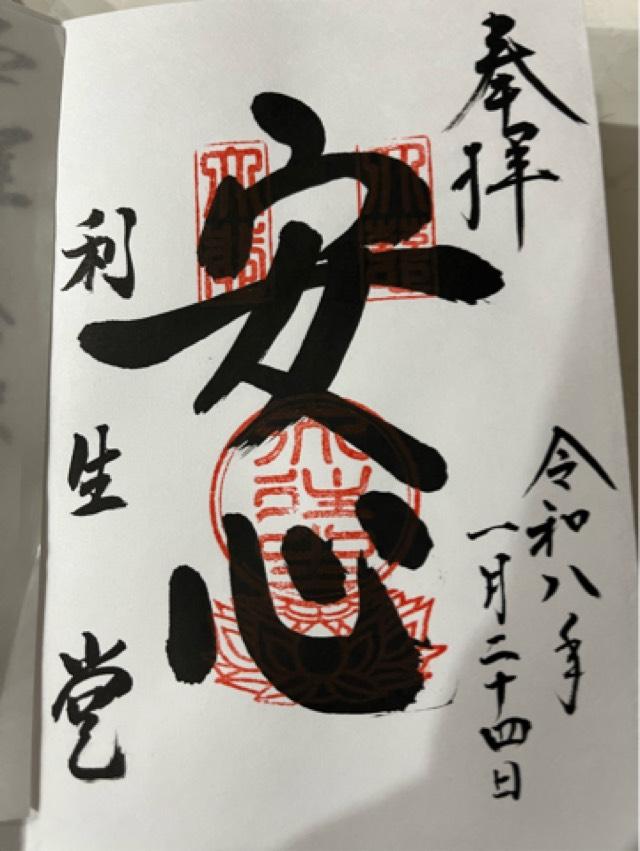 奉拝
令和八年
一月二十四日
安心
利生堂